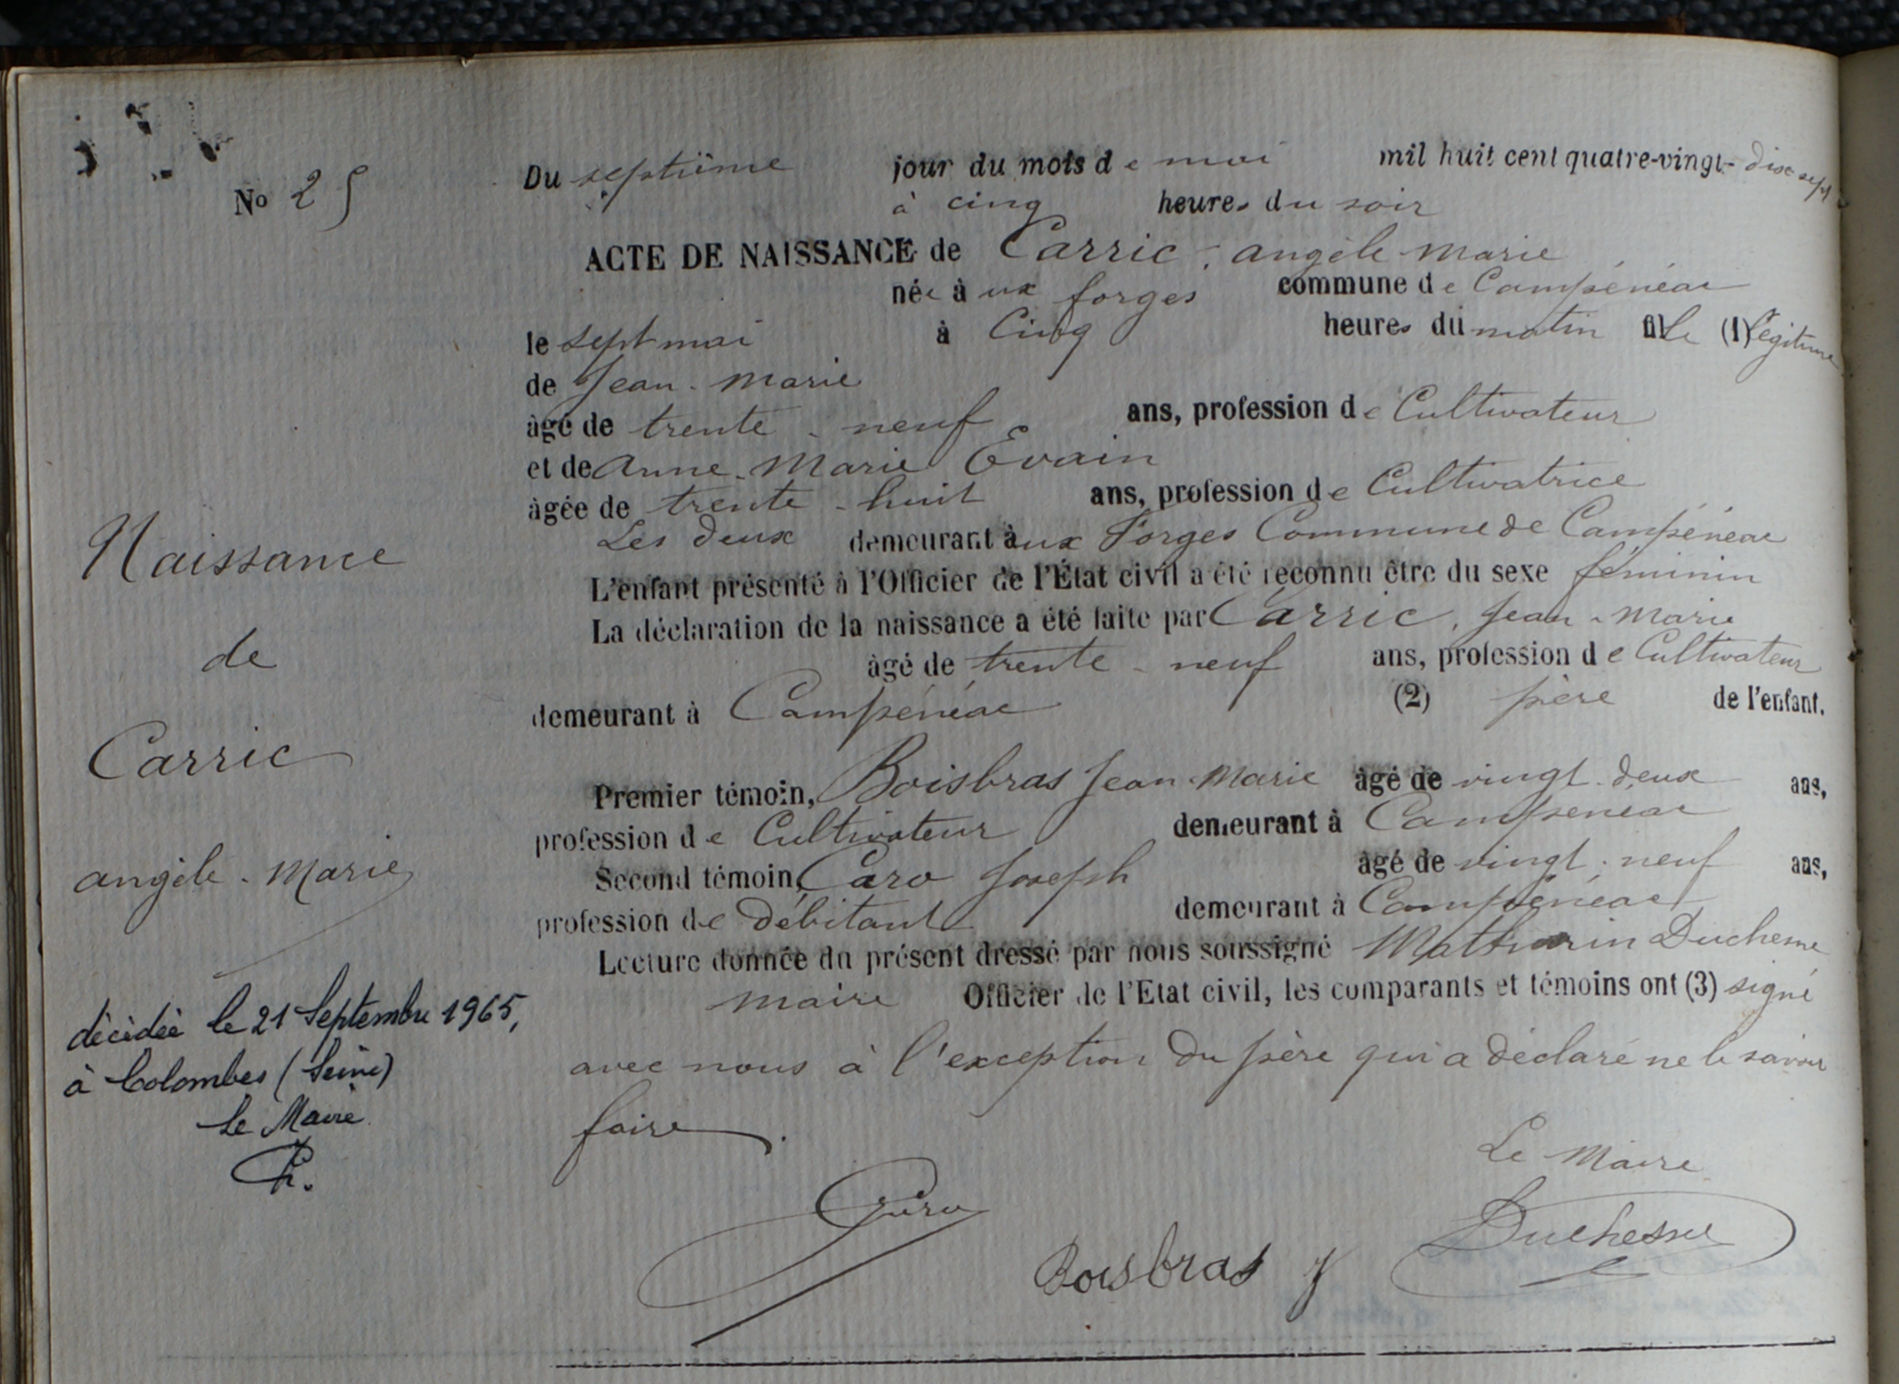 No 25
Du septième jour du mois de mai mil huit cent quatre-vingt-dix sept
à cinq heures du soir
ACTE DE NAISSANCE de Carric, angèle Marie
née aux forges commune de Campénéac
le sept mai à Cinq heures du matin fille (1) légitime
de Jean-Marie
âgé de trente-neuf ans, profession de Cultivateur
et de anne-Marie Evain
âgée de trente-huit ans, profession de Cultivatrice
Les deux demeurant aux Forges Commune de Campénéac
L'enfant présenté à l'Officier de l'État civil a été reconnu être du sexe féminin
La déclaration de la naissance a été faite par Carric, Jean-Marie
âgé de trente-neuf ans, profession de Cultivateur
demeurant à Campénéac (2) père de l'enfant.
Premier témoin, Boisbras Jean-Marie âgé de vingt-deux ans,
profession de Cultivateur demeurant à Campénéac
Second témoin, Caro Joseph âgé de vingt-neuf ans,
profession de débitant demeurant à Campénéac
Lecture donnée du présent dressé par nous soussigné Mathurin Duchesne
maire Officier de l'Etat civil, les comparants et témoins ont (3) signé
avec nous à l'exception du père qui a déclaré ne le savoir
faire.
Le Maire
Caro
Boisbras J
Duchesne
Naissance
de
Carric
angèle-Marie
décédée le 21 Septembre 1965,
à Colombes (Seine)
Le Maire